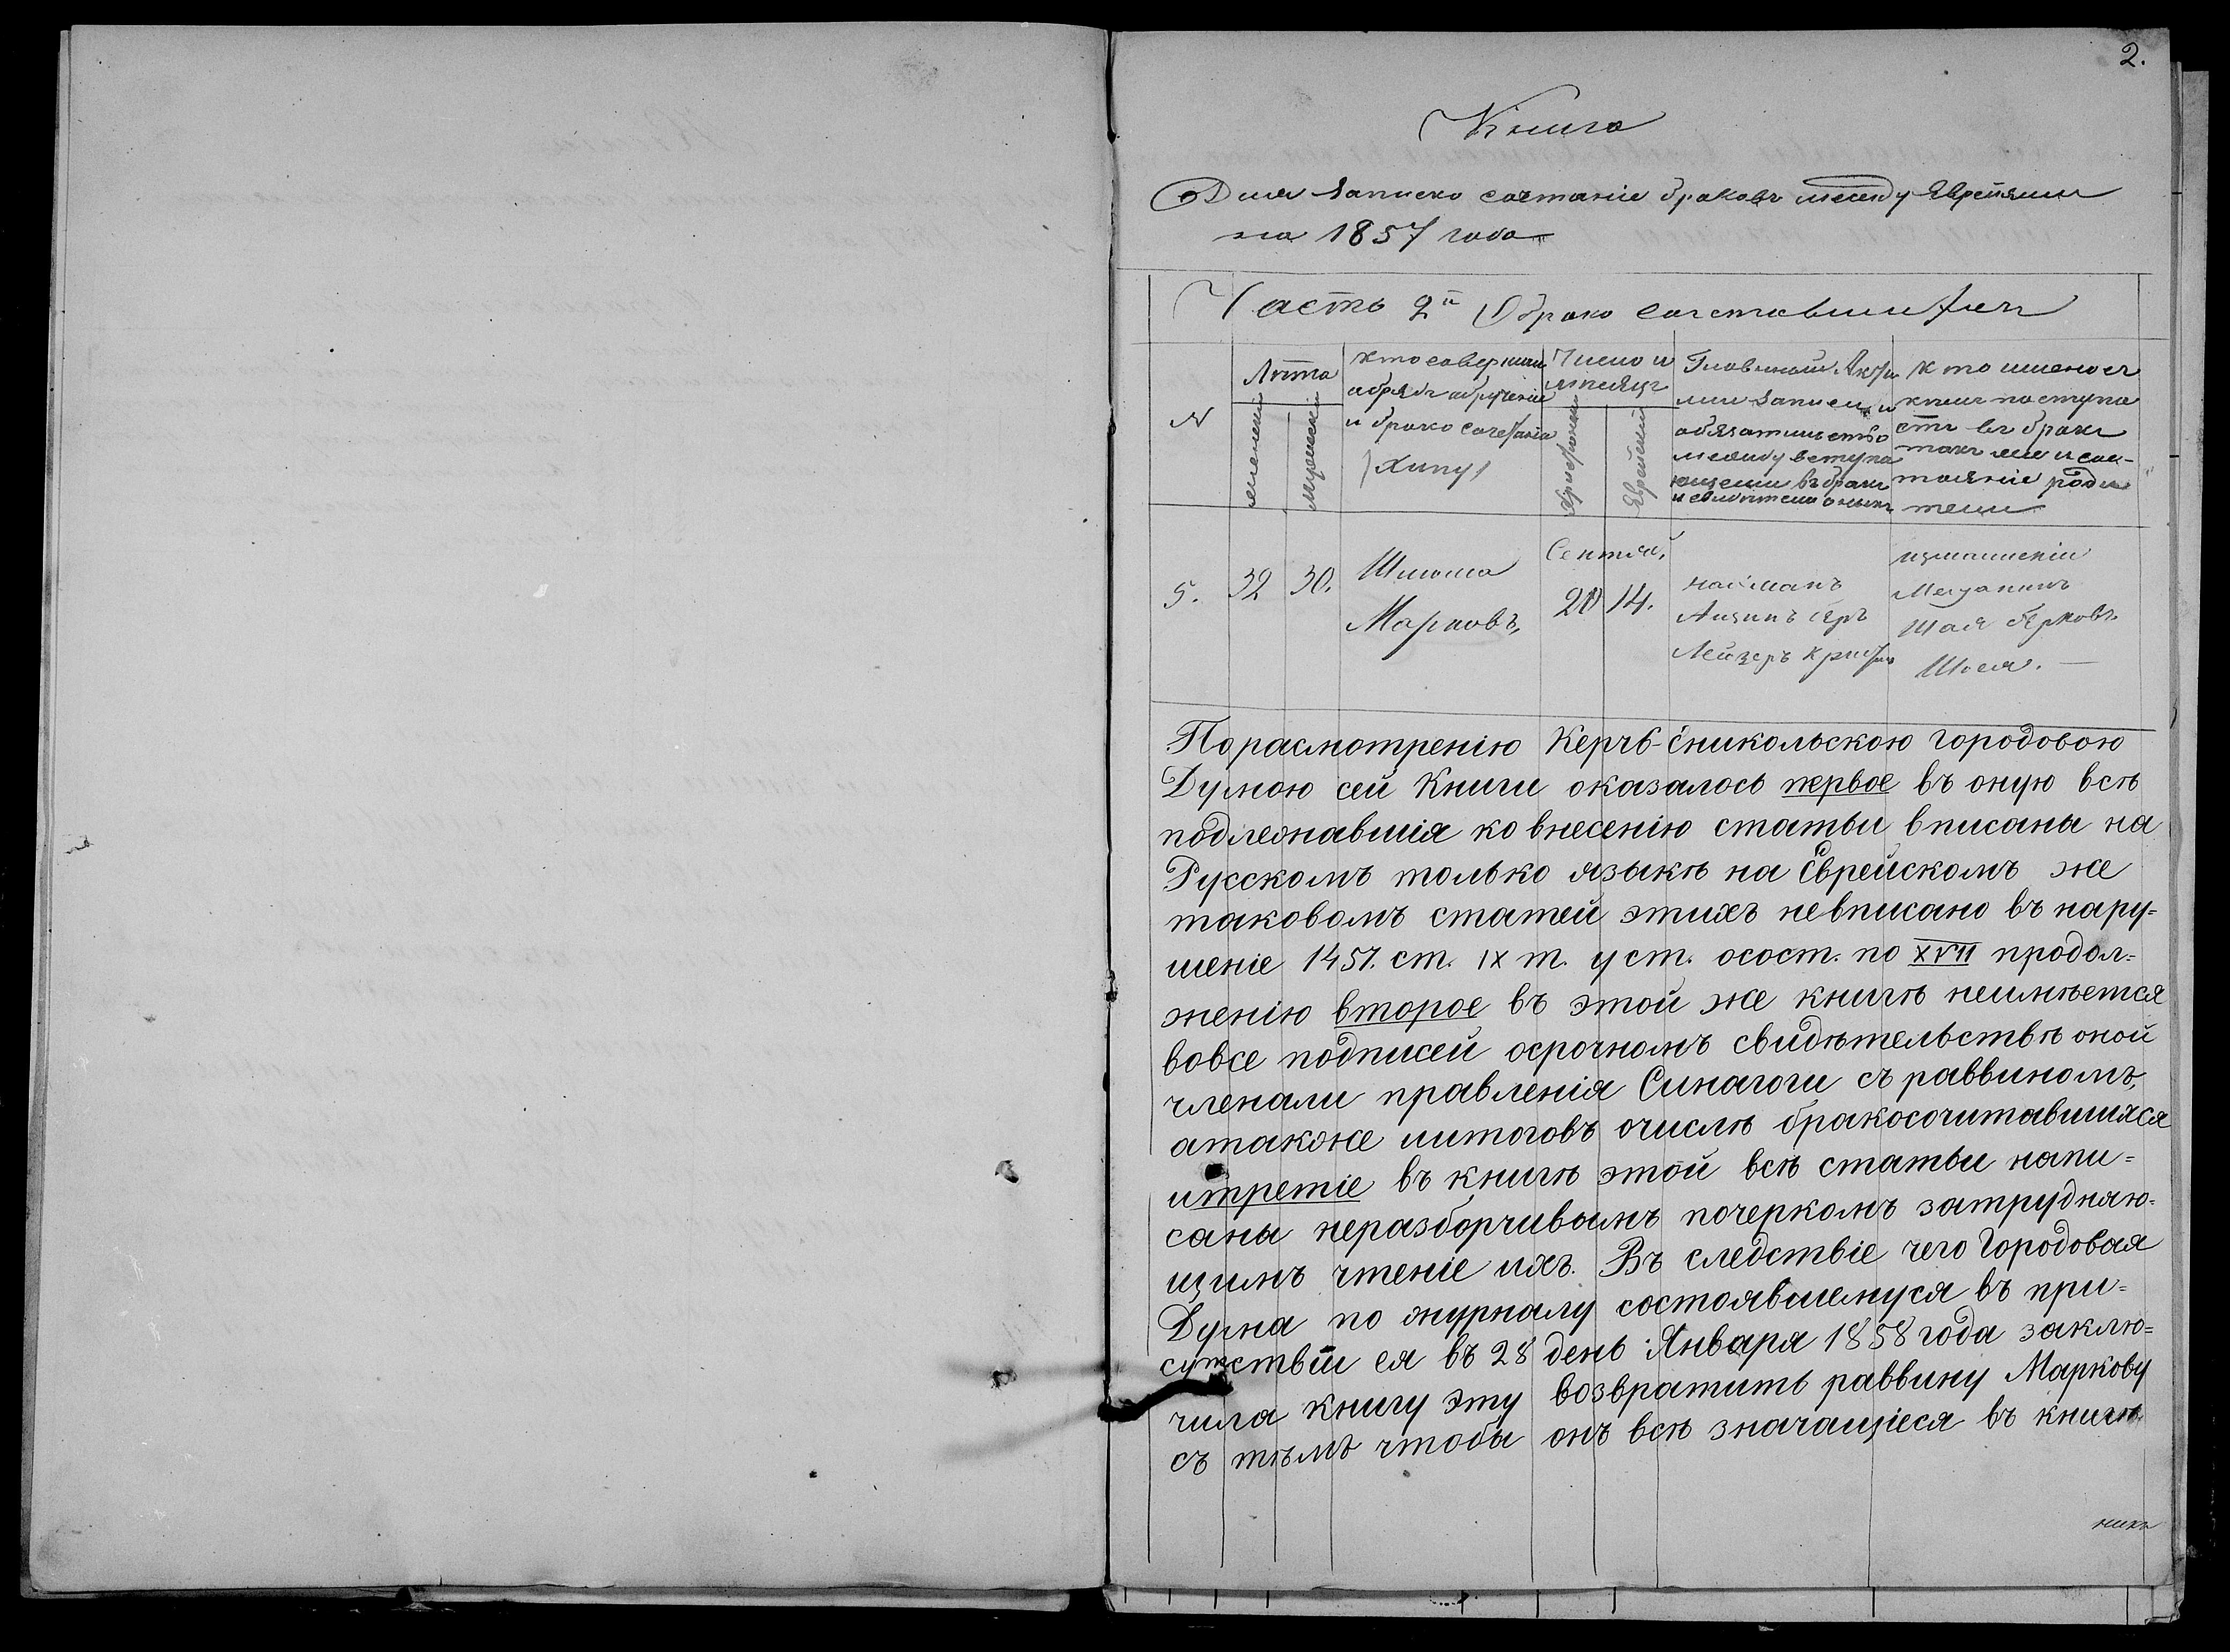 2.
Книга
Для записко сочтаніе браковъ между Евреями
на 1857 года
Часть 2й О брако сочетавшихся
N
Лѣта
женскій
мужескій
кто совершил
обрядъ обрученіе
и брако сочетанія
(Хипу)
Число и
мѣсяцъ
Христіянскій
Еврейскій
Главныи Акты
или записи и
обязательство
между вступа
ющеми въ бракъ
и свидѣтели оныхъ
кто имено съ
кемъ поступа
етъ въ бракъ
такъ же и сос-
тояніе роди
тели
5.
32
30.
Шлиома
Марковъ,
Сентяб.
20
14.
нахманъ
Лейзеръ
Мещанинъ
Шая Берковъ
По расмотренію Керчь-Еникольскою городовою
Думою сей Книги оказалось первое въ оную всѣ
подлежавшія ко внесенію статьи вписаны на
Русскомъ только языкѣ на Еврейскомъ же
таковомъ статей этихъ невписано въ нару=
шеніе 1451. ст. IX т. уст. осост. по XVII продол=
женію второе въ этой же книгѣ неимѣется
вовсе подписей осрочномъ свидѣтельствѣ оной
членами правленія Синагоги съ раввиномъ,
атакже иитоговъ очислѣ бракосочитавшихся
итретіе въ книгѣ этой всѣ статьи напи=
саны неразборчивымъ почеркомъ затрудняю=
щимъ чтеніе ихъ. Въ следствіе чего Городовая
Дума по журналу состоявшемуся въ при=
сутствіи ея въ 28 день Января 1858 года заклю=
чила книгу эту возвратить раввину Маркову
съ тѣмъ чтобы онъ всѣ значащіеся въ книгѣ